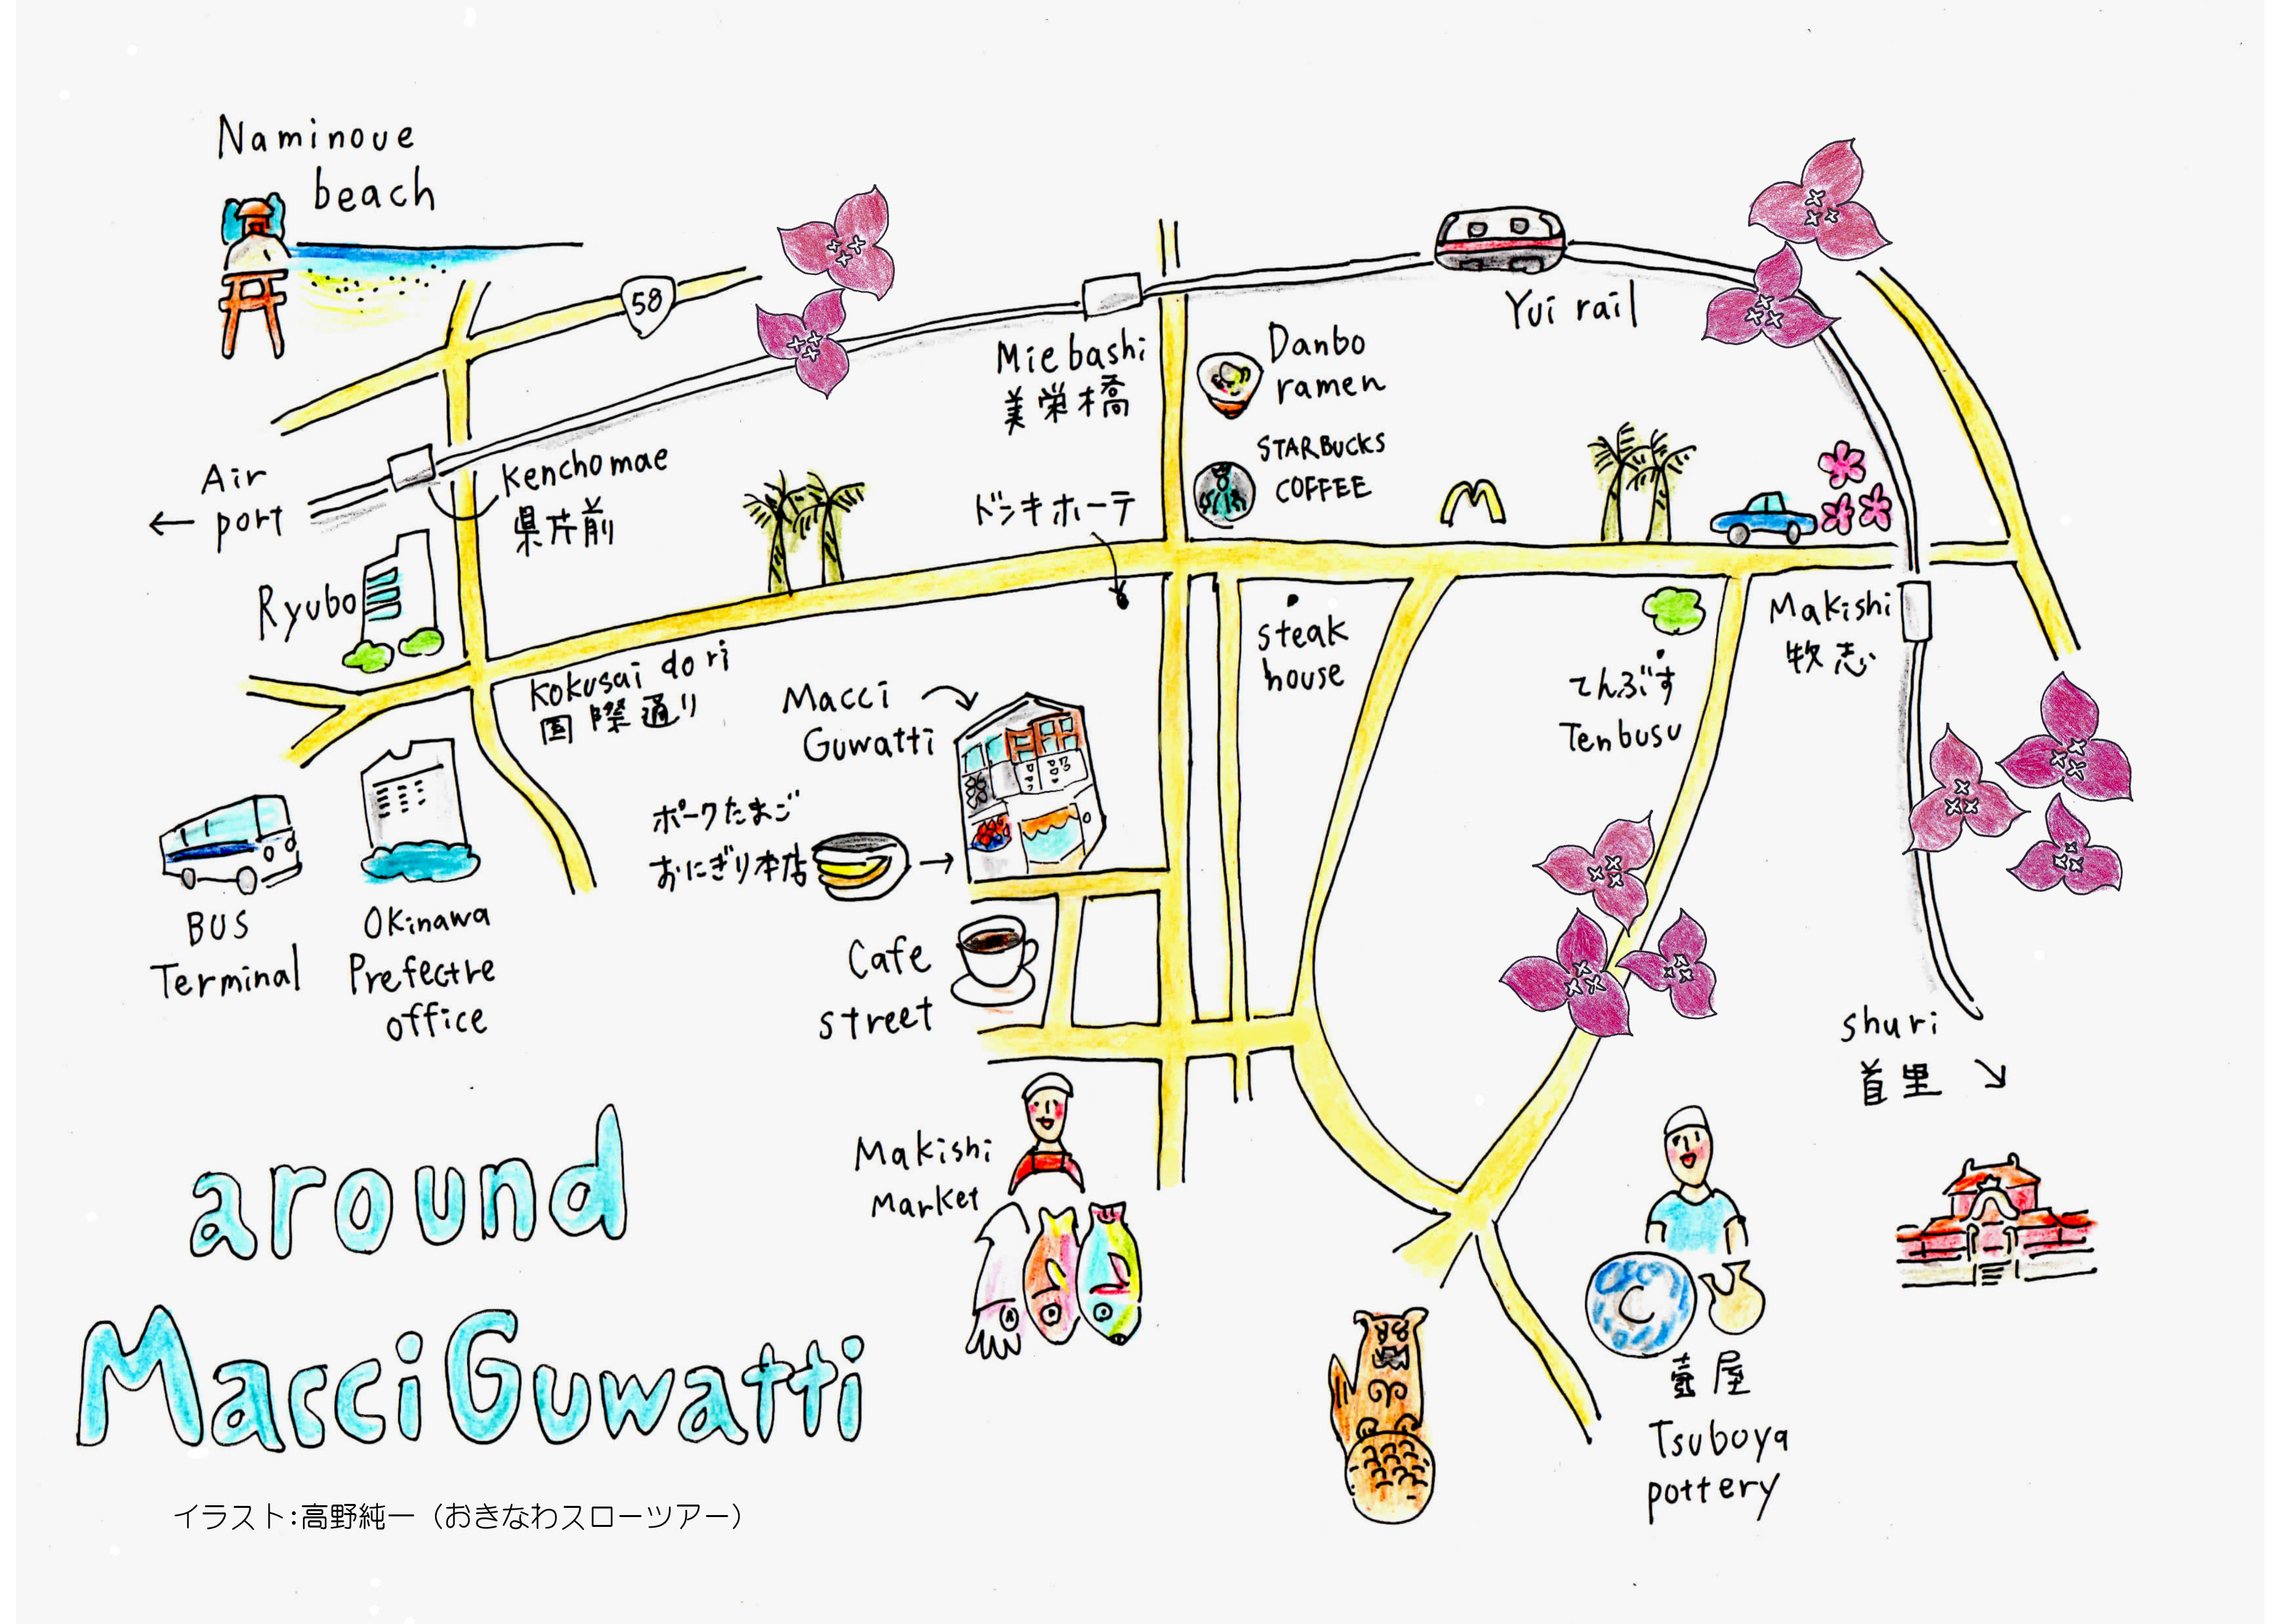 Naminoue
beach
58
Air
port
Kenchomae
県庁前
Ryubo
Kokusai dori
国際通り
BUS
Terminal
Okinawa
Prefectre
office
Miebashi
美栄橋
Danbo
ramen
STARBUCKS
COFFEE
ドンキホーテ
Yui rail
steak
house
てんぶす
Tenbusu
Makishi
牧志
Macci
Guwatti
ポークたまご
おにぎり本店
Cafe
street
Makishi
Market
shuri
首里
壺屋
Tsuboya
pottery
around
MacciGuwatti
イラスト:高野純一（おきなわスローツアー）